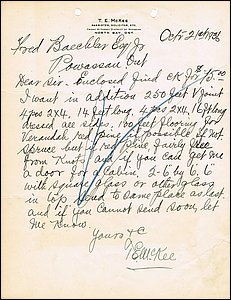 T. E. McKEE
BARRISTER, SOLICITOR, ETC.
NORTH BAY, ONT.
Oct 21st
Fred Baechler Esq Jr
Powassan Ont
Dear Sir- Enclosed find CK $75.00
I want in addition 250 feet V Joint
4 pcs 2x4, 14 feet long, 4 pcs 2x4, 16 ft long
dressed one side. 180 feet flooring for
Verandah red pine if possible if not
Spruce but red pine fairly free
from Knots and if you can get me
a door for a Cabin, 2-6 by 6.6"
with square glass or other glass
in top. Send to same place as last
and if you cannot send soon, let
me know
Yours &c
T E McKee